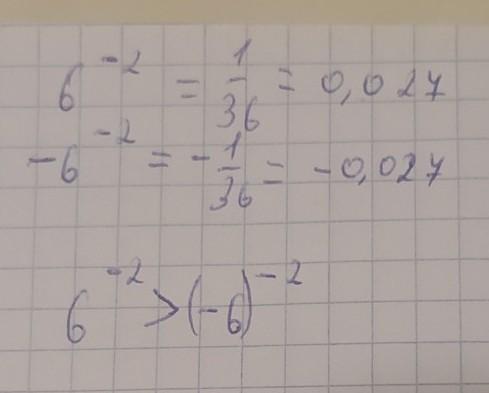 6^-2 = 1/36 = 0,027
-6^-2 = -1/36 = -0,027
6^-2 > (-6)^-2